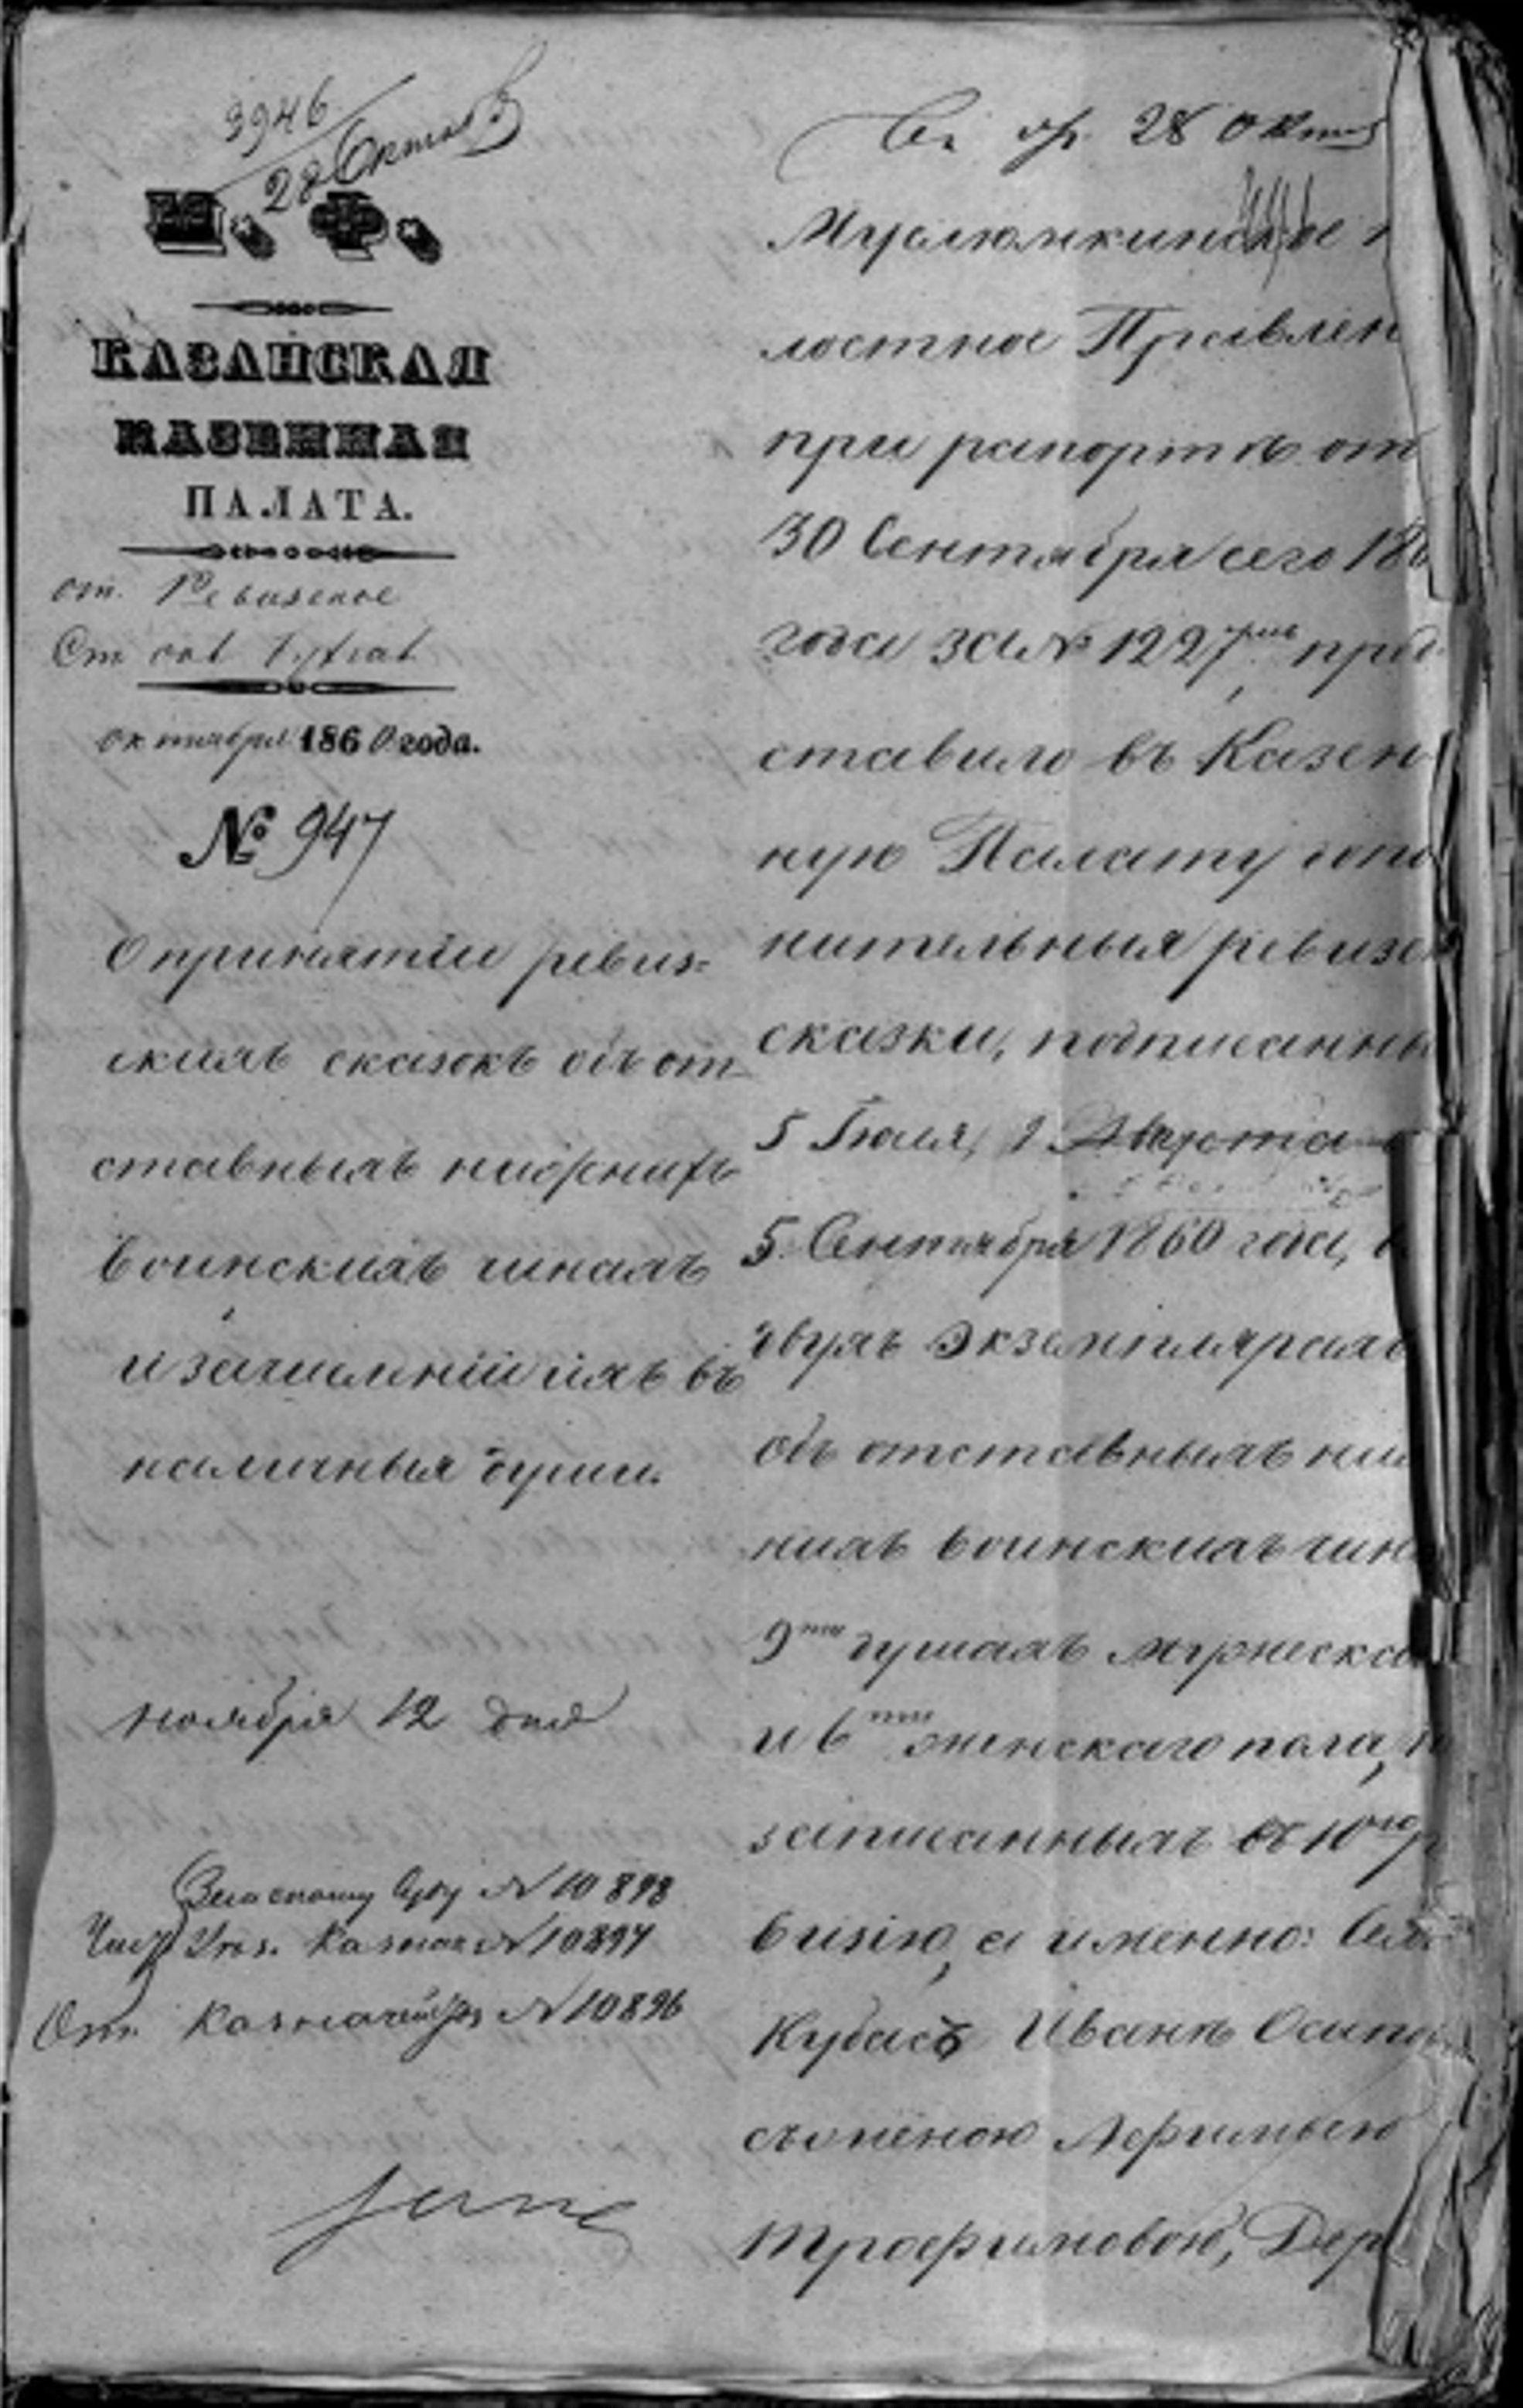 3946
28 Октября
М. Ф.
КАЗАНСКАЯ
КАЗЕННАЯ
ПАЛАТА.
От. Ревизское
Ст
октября 1860 года.
№ 947
О принятіи ревиз=
скихъ сказокъ объ от-
ставныхъ нижнихъ
воинскихъ чинахъ
и зачисленіи ихъ въ
наличныя души.
ноября 12 дня
Суду № 10898
Казнач № 10897
От. Казначейству № 10896
28 Октяб
Муралюнкинское
лостное Правлен
при рапортѣ от
30 Сентября сего 186
года за № 1227 пред
ставило въ Казен
ную Палату допо
нительныя ревизс
сказки, подписанны
5 Іюля, 1 Августа
5 Сентября 1860 года, в
двухъ экземплярахъ
объ отставныхъ ниж
нихъ воинскихъ чин
9ти душахъ мужеска
и 6ти женскаго пола, н
записанныхъ въ 10ю р
визію, а именно: Сел
Кубасъ Иванѣ Осипо
съ женою
Трофимовою, Дер